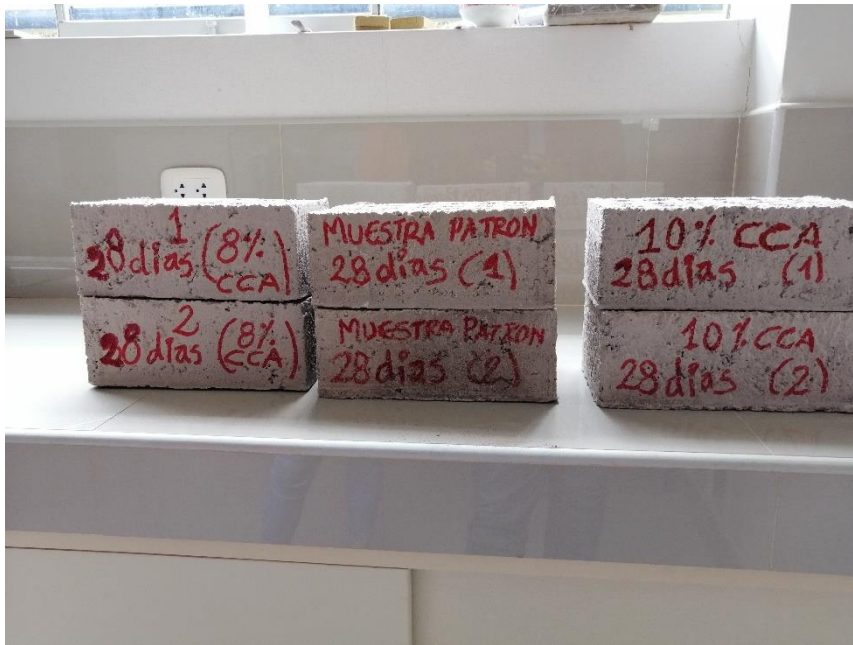 1
28 dias (8%
CCA)
2
28 dias (8%
CCA)
MUESTRA PATRON
28 dias (1)
MUESTRA PATRON
28 dias (2)
10% CCA
28 dias (1)
10% CCA
28 dias (2)